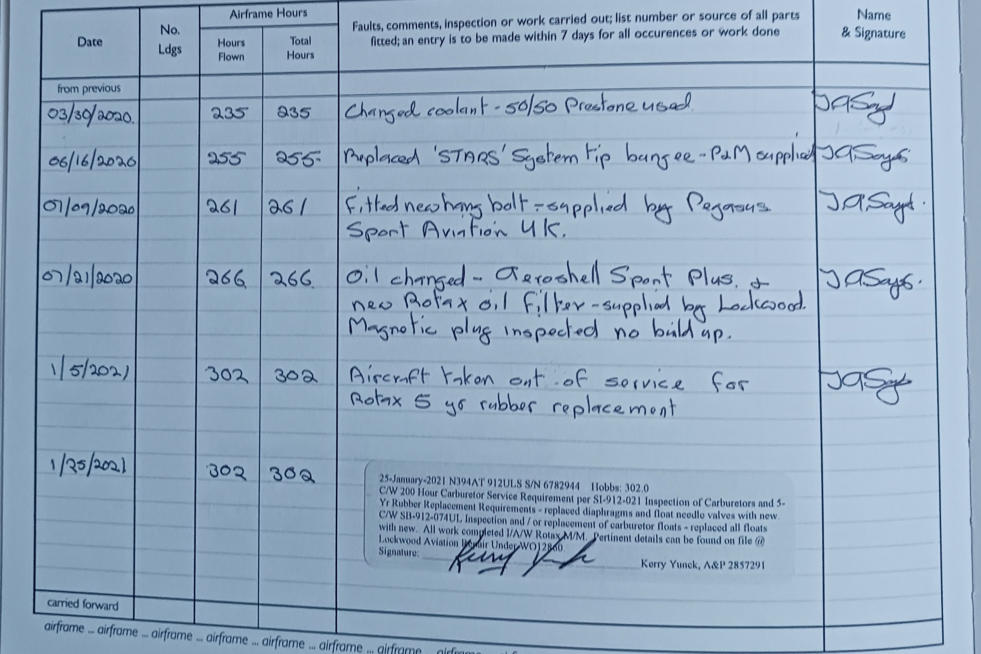 Date
No. Ldgs
Airframe Hours
Hours Flown
Total Hours
Faults, comments, inspection or work carried out; list number or source of all parts
fitted; an entry is to be made within 7 days for all occurences or work done
Name
& Signature
from previous
03/30/2020. 235 235 Changed coolant - 50/50 Prestone used
06/16/2020 255 255. Replaced 'STARS' System tip bungee - P&M supplied
07/09/2020 261 261 Fitted new hang bolt - supplied by Pegasus
Sport Aviation UK.
07/21/2020 266 266 Oil changed - Aeroshell Sport Plus. &
new Rotax oil filter - supplied by Lockwood.
Magnetic plug inspected no build up.
1/5/2021 302 302 Aircraft taken out of service for
Rotax 5 yr rubber replacement
1/25/2021 302 302
25-January-2021 N394AT 912ULS S/N 6782944 Hobbs: 302.0
C/W 200 Hour Carburetor Service Requirement per SI-912-021 Inspection of Carburetors and 5-
Yr Rubber Replacement Requirements - replaced diaphragms and float needle valves with new
C/W SB-912-074UL Inspection and / or replacement of carburetor floats - replaced all floats
with new. All work completed I/A/W Rotax M/M. Pertinent details can be found on file @
Lockwood Aviation Repair Under WO12860
Signature: Kerry Yunck, A&P 2857291
carried forward
airframe ... airframe ... airframe ... airframe ... airframe ... airframe ... airframe ... airframe